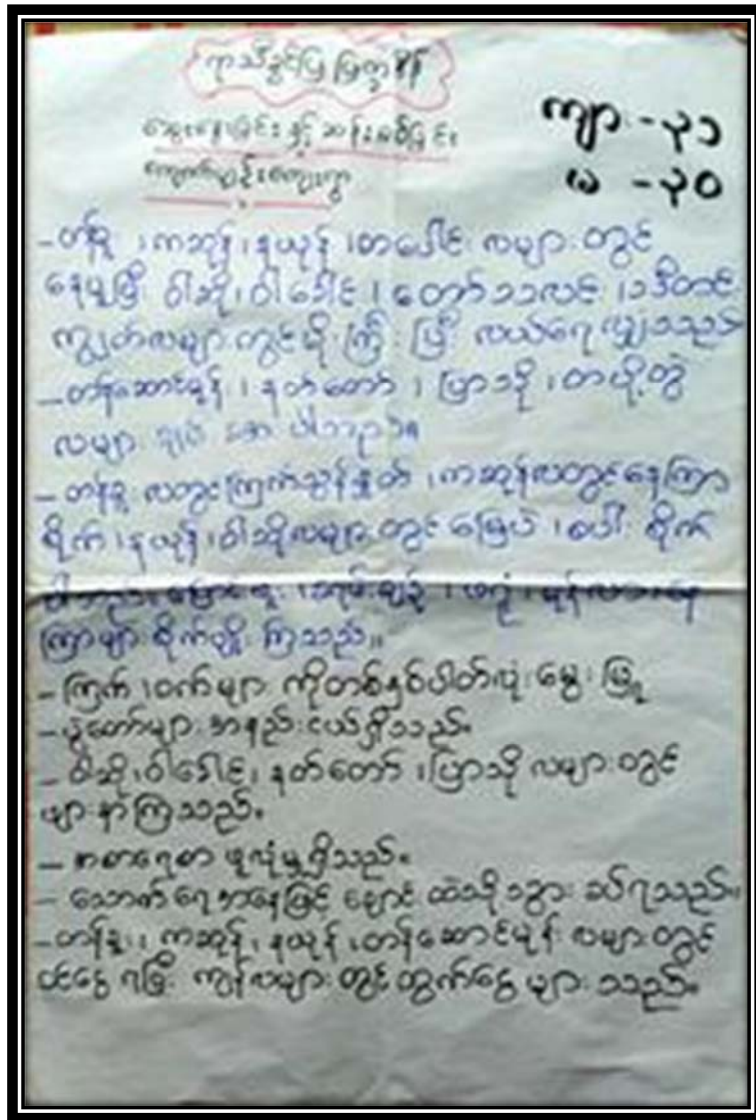 ရာသီခွင်ပြ ပြက္ခဒိန်
ဆွေးနွေးခြင်း နှင့် ဆန်းစစ်ခြင်း
ကျောက်မျဉ်းကျေးရွာ
ကျား - ၃၁
မ - ၃၀
- တန်ခူး ၊ ကဆုန် ၊ နယုန် ၊ တပေါင်း လများ တွင်
နေပူပြီး ဝါဆို ၊ ဝါခေါင် ၊ တော်သလင်း ၊ သီတင်း
ကျွတ်လများ တွင်မိုးကြီး ပြီး လယ်ရေ လျှံသည်
- တန်ဆောင်မုန်း ၊ နတ်တော် ၊ ပြာသို ၊ တပို့တွဲ
လများ ချမ်းအေး ပါသည်။
- တန်ခူး လတွင်ကြက်သွန်နှုတ် ၊ ကဆုန်လတွင်နေကြာ
စိုက် ၊ နယုန် ၊ ဝါဆိုလများ တွင် မြေပဲ ၊ စပါး စိုက်
ပါသည်။
ကြာများ စိုက်ပျိုး ကြသည်။
- ကြက် ၊ ဝက်များ ကိုတစ်နှစ်ပါတ်လုံး မွေး မြူ
- ပွဲတော်များ အနည်းငယ်ရှိသည်။
- ဝါဆို ၊ ဝါခေါင် ၊ နတ်တော် ၊ ပြာသို လများ တွင်
ဖျားနာကြသည်။
- အစားရေစာ ဖူလုံမှုရှိသည်။
- သောက်ရေ အနေဖြင့် ချောင်း ထဲသို့ သွား ခပ်ရသည်။
- တန်ခူး ၊ ကဆုန် ၊ နယုန် ၊ တန်ဆောင်မုန်း လများ တွင်
ဝင်ငွေ ရပြီး ကျန်လများ တွင် ထွက်ငွေ များ သည်။